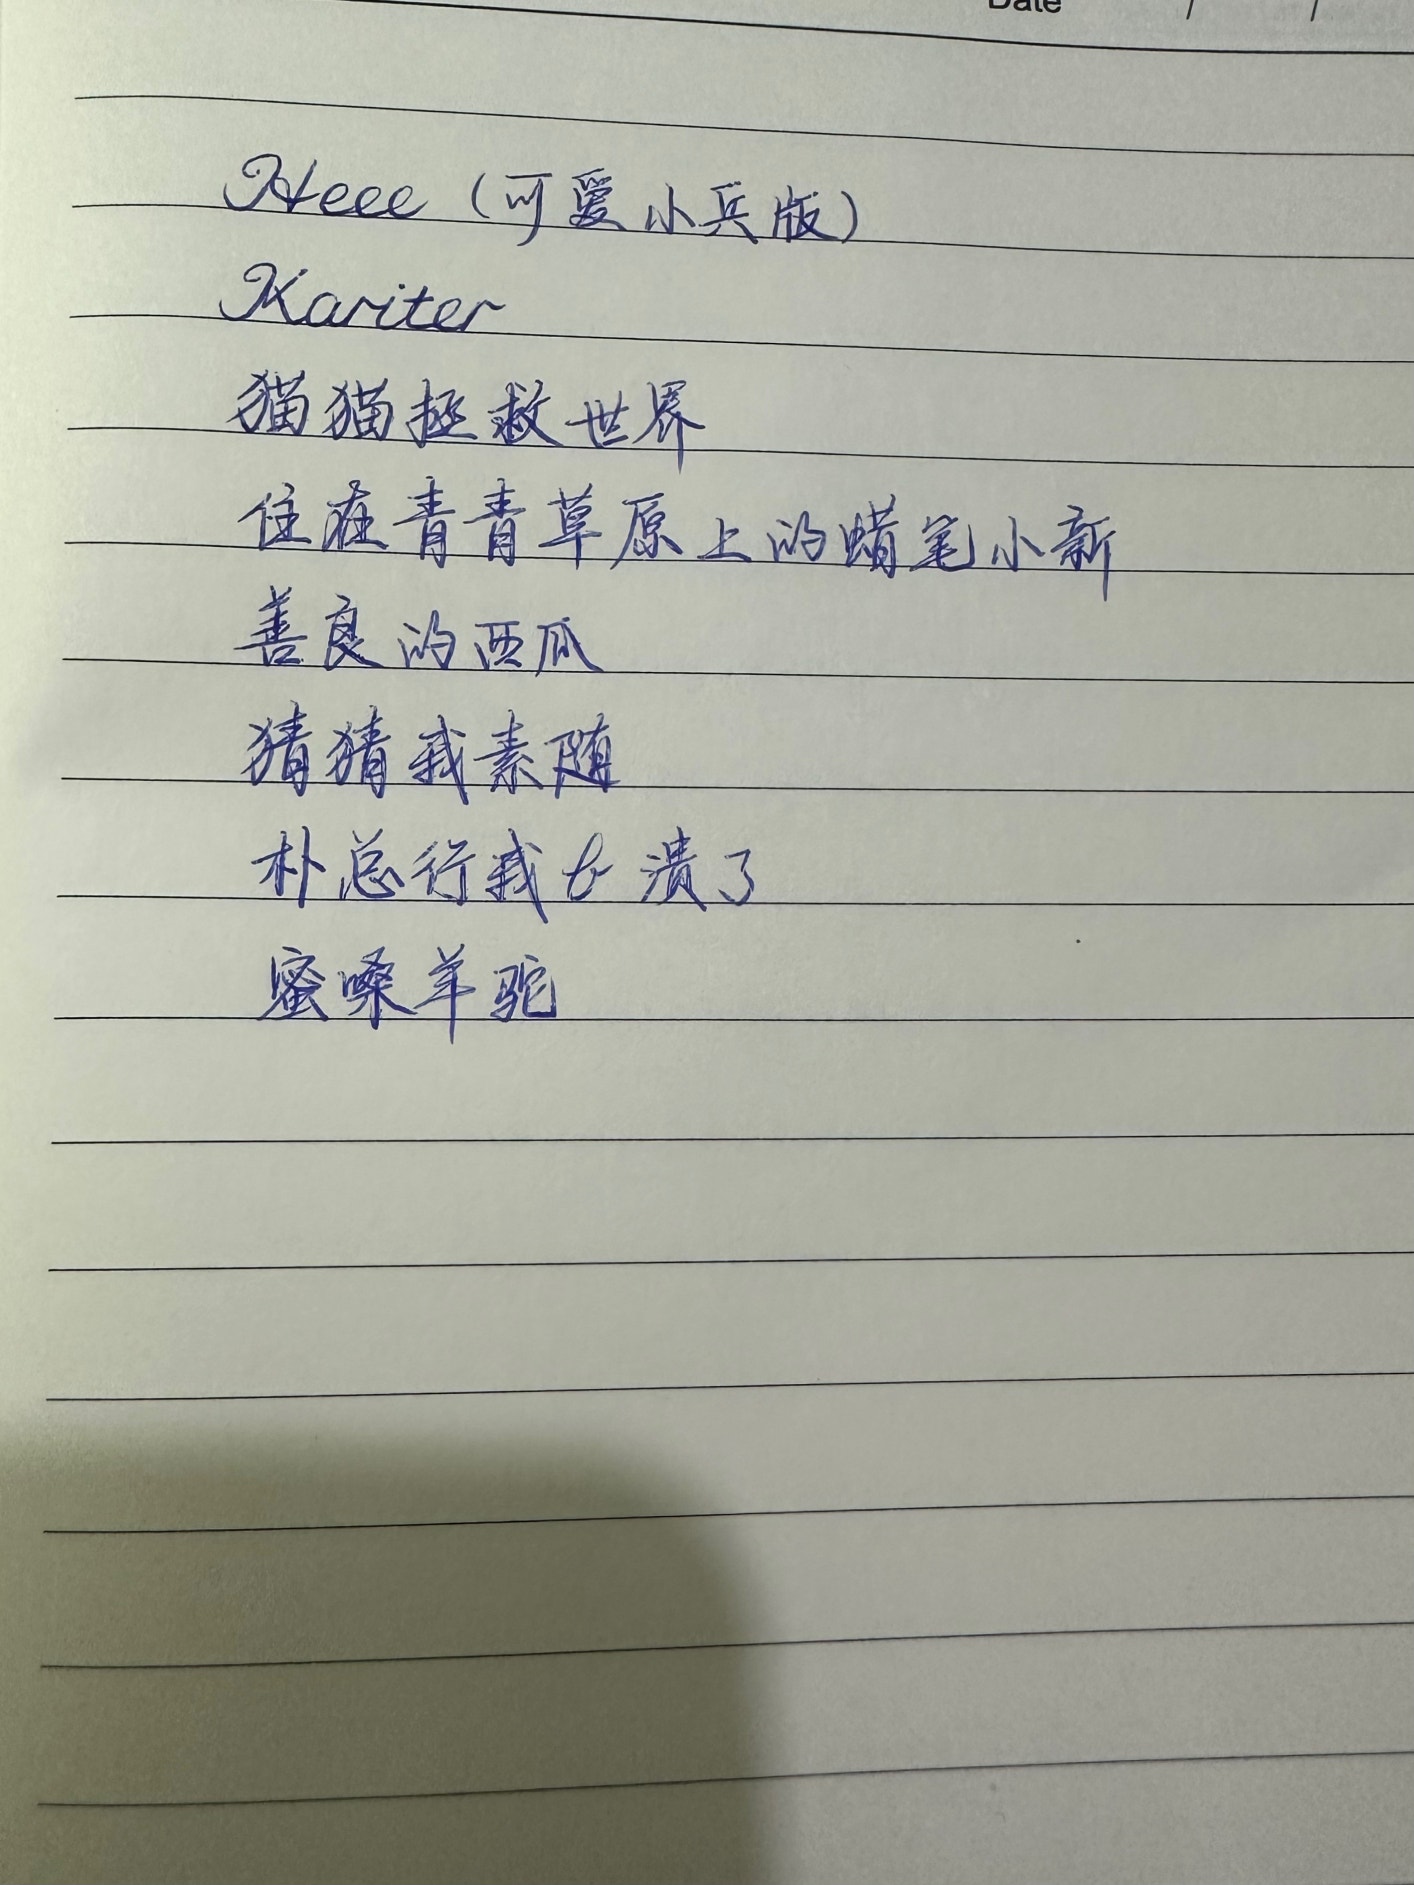 Date / /
Heee（可爱小兵版）
Kariter
猫猫拯救世界
住在青青草原上的蜡笔小新
善良的西瓜
猜猜我素随
朴总行我b溃了
蜜嗓羊驼